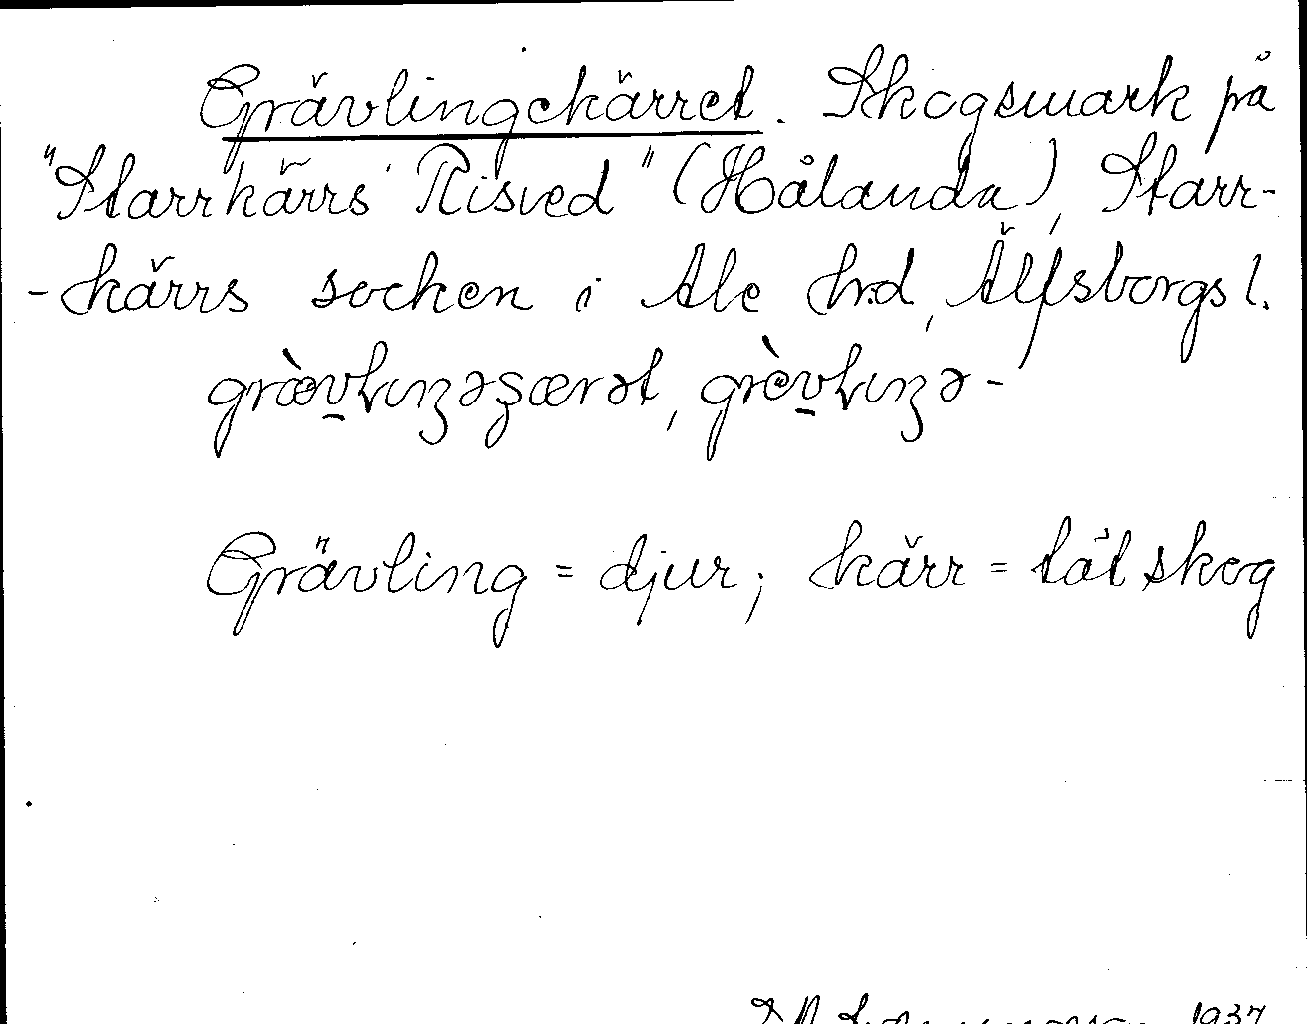 Grävlingekärret. Skogsmark på
"Starrkärrs Risved" (Hålanda), Starr-
-kärrs socken i Ale hrd, Älfsborgs l.
grævlıŋəʂærət, grèvlıŋə-
Grävling = djur; kärr = tät skog
1937